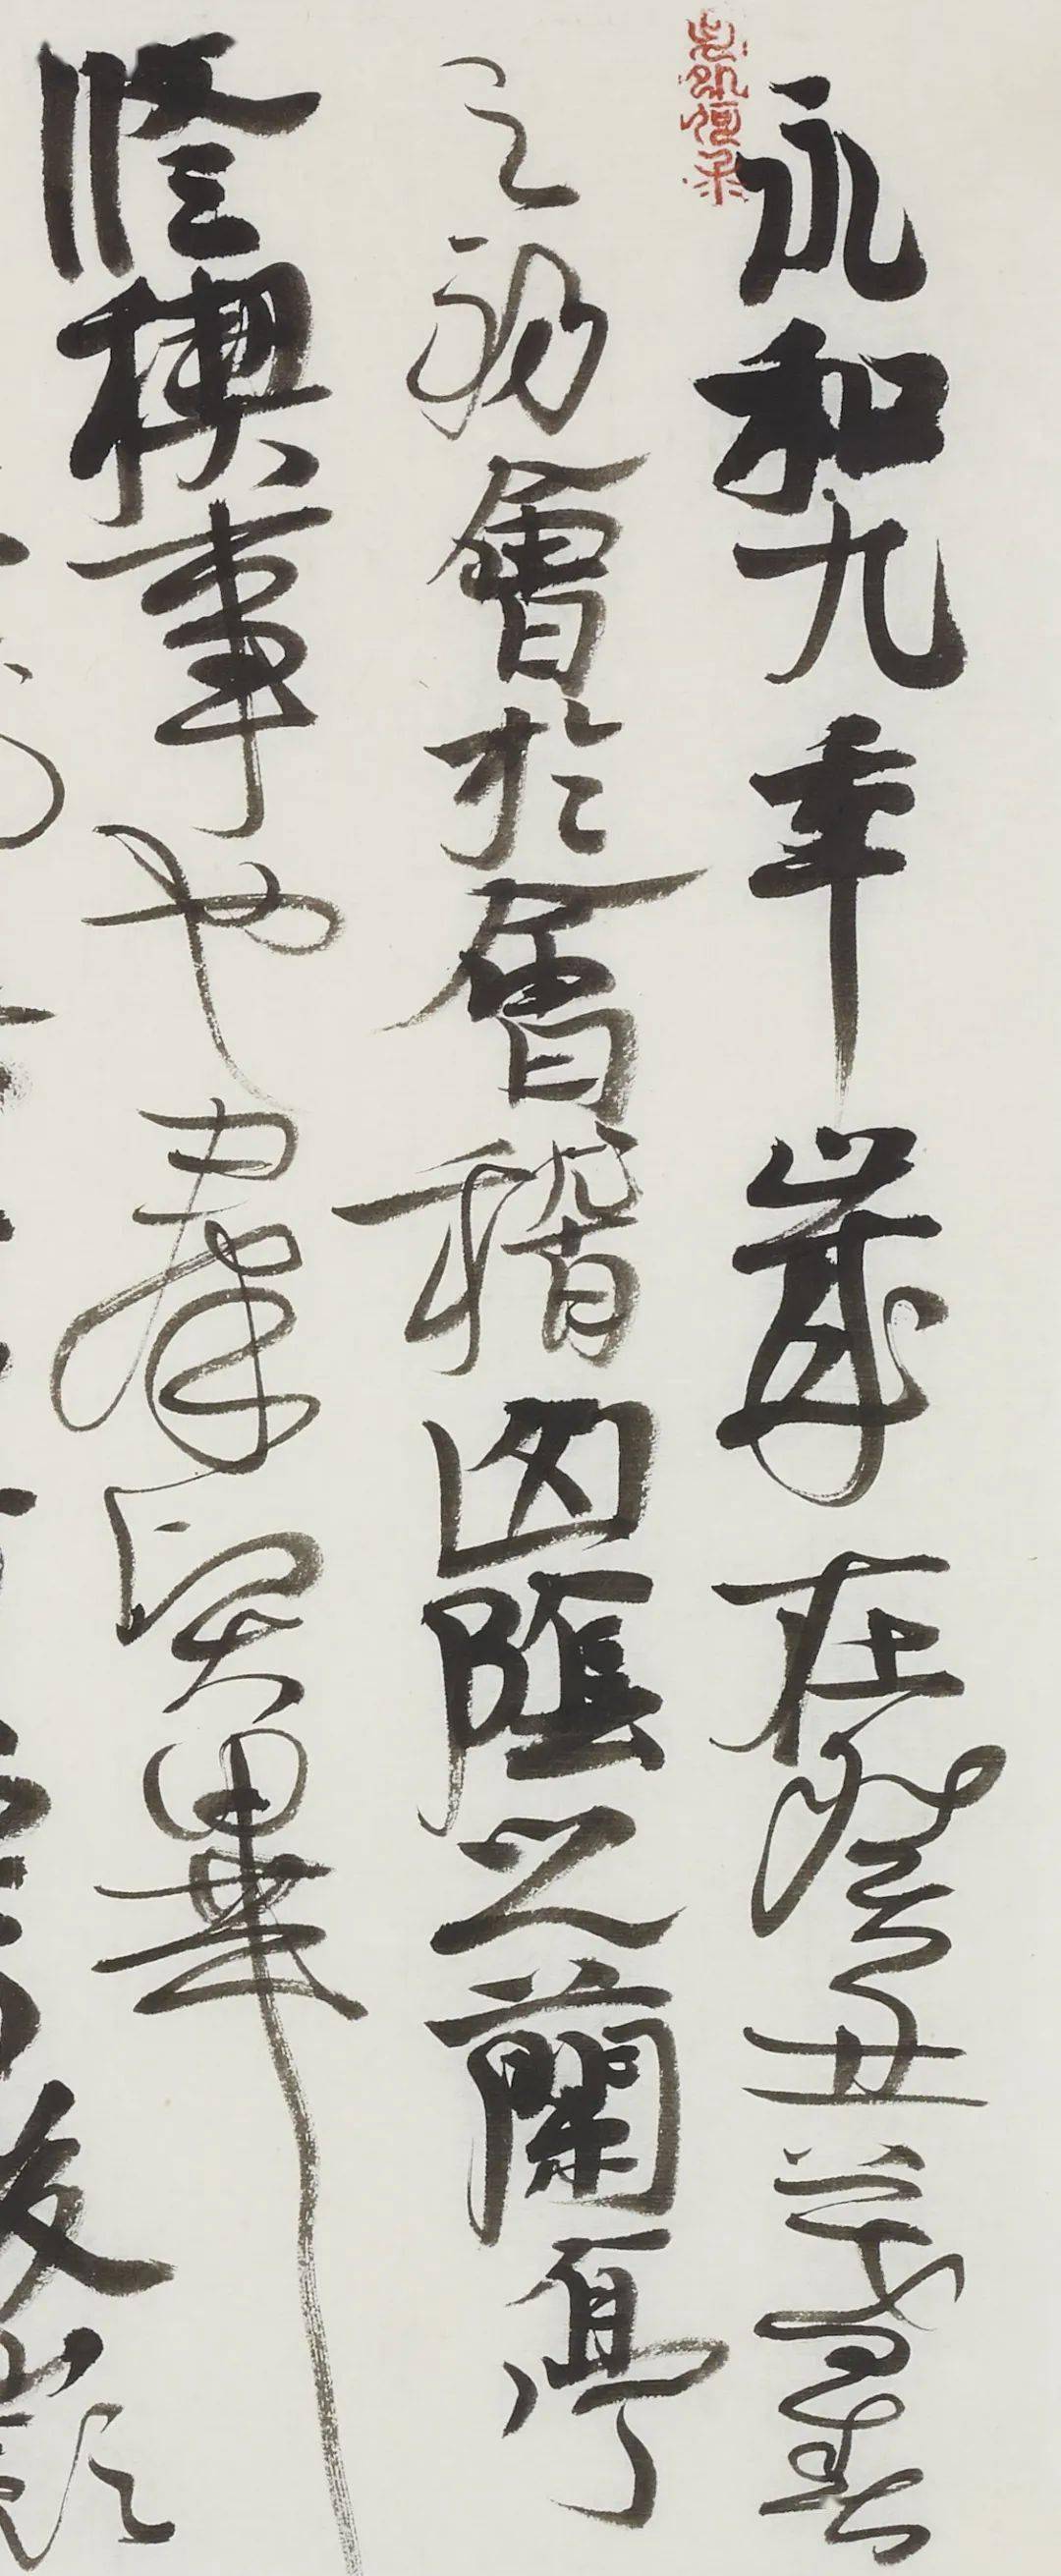 永和九年歲在癸丑暮春
之初會於會稽山陰之蘭亭
修禊事也羣賢畢